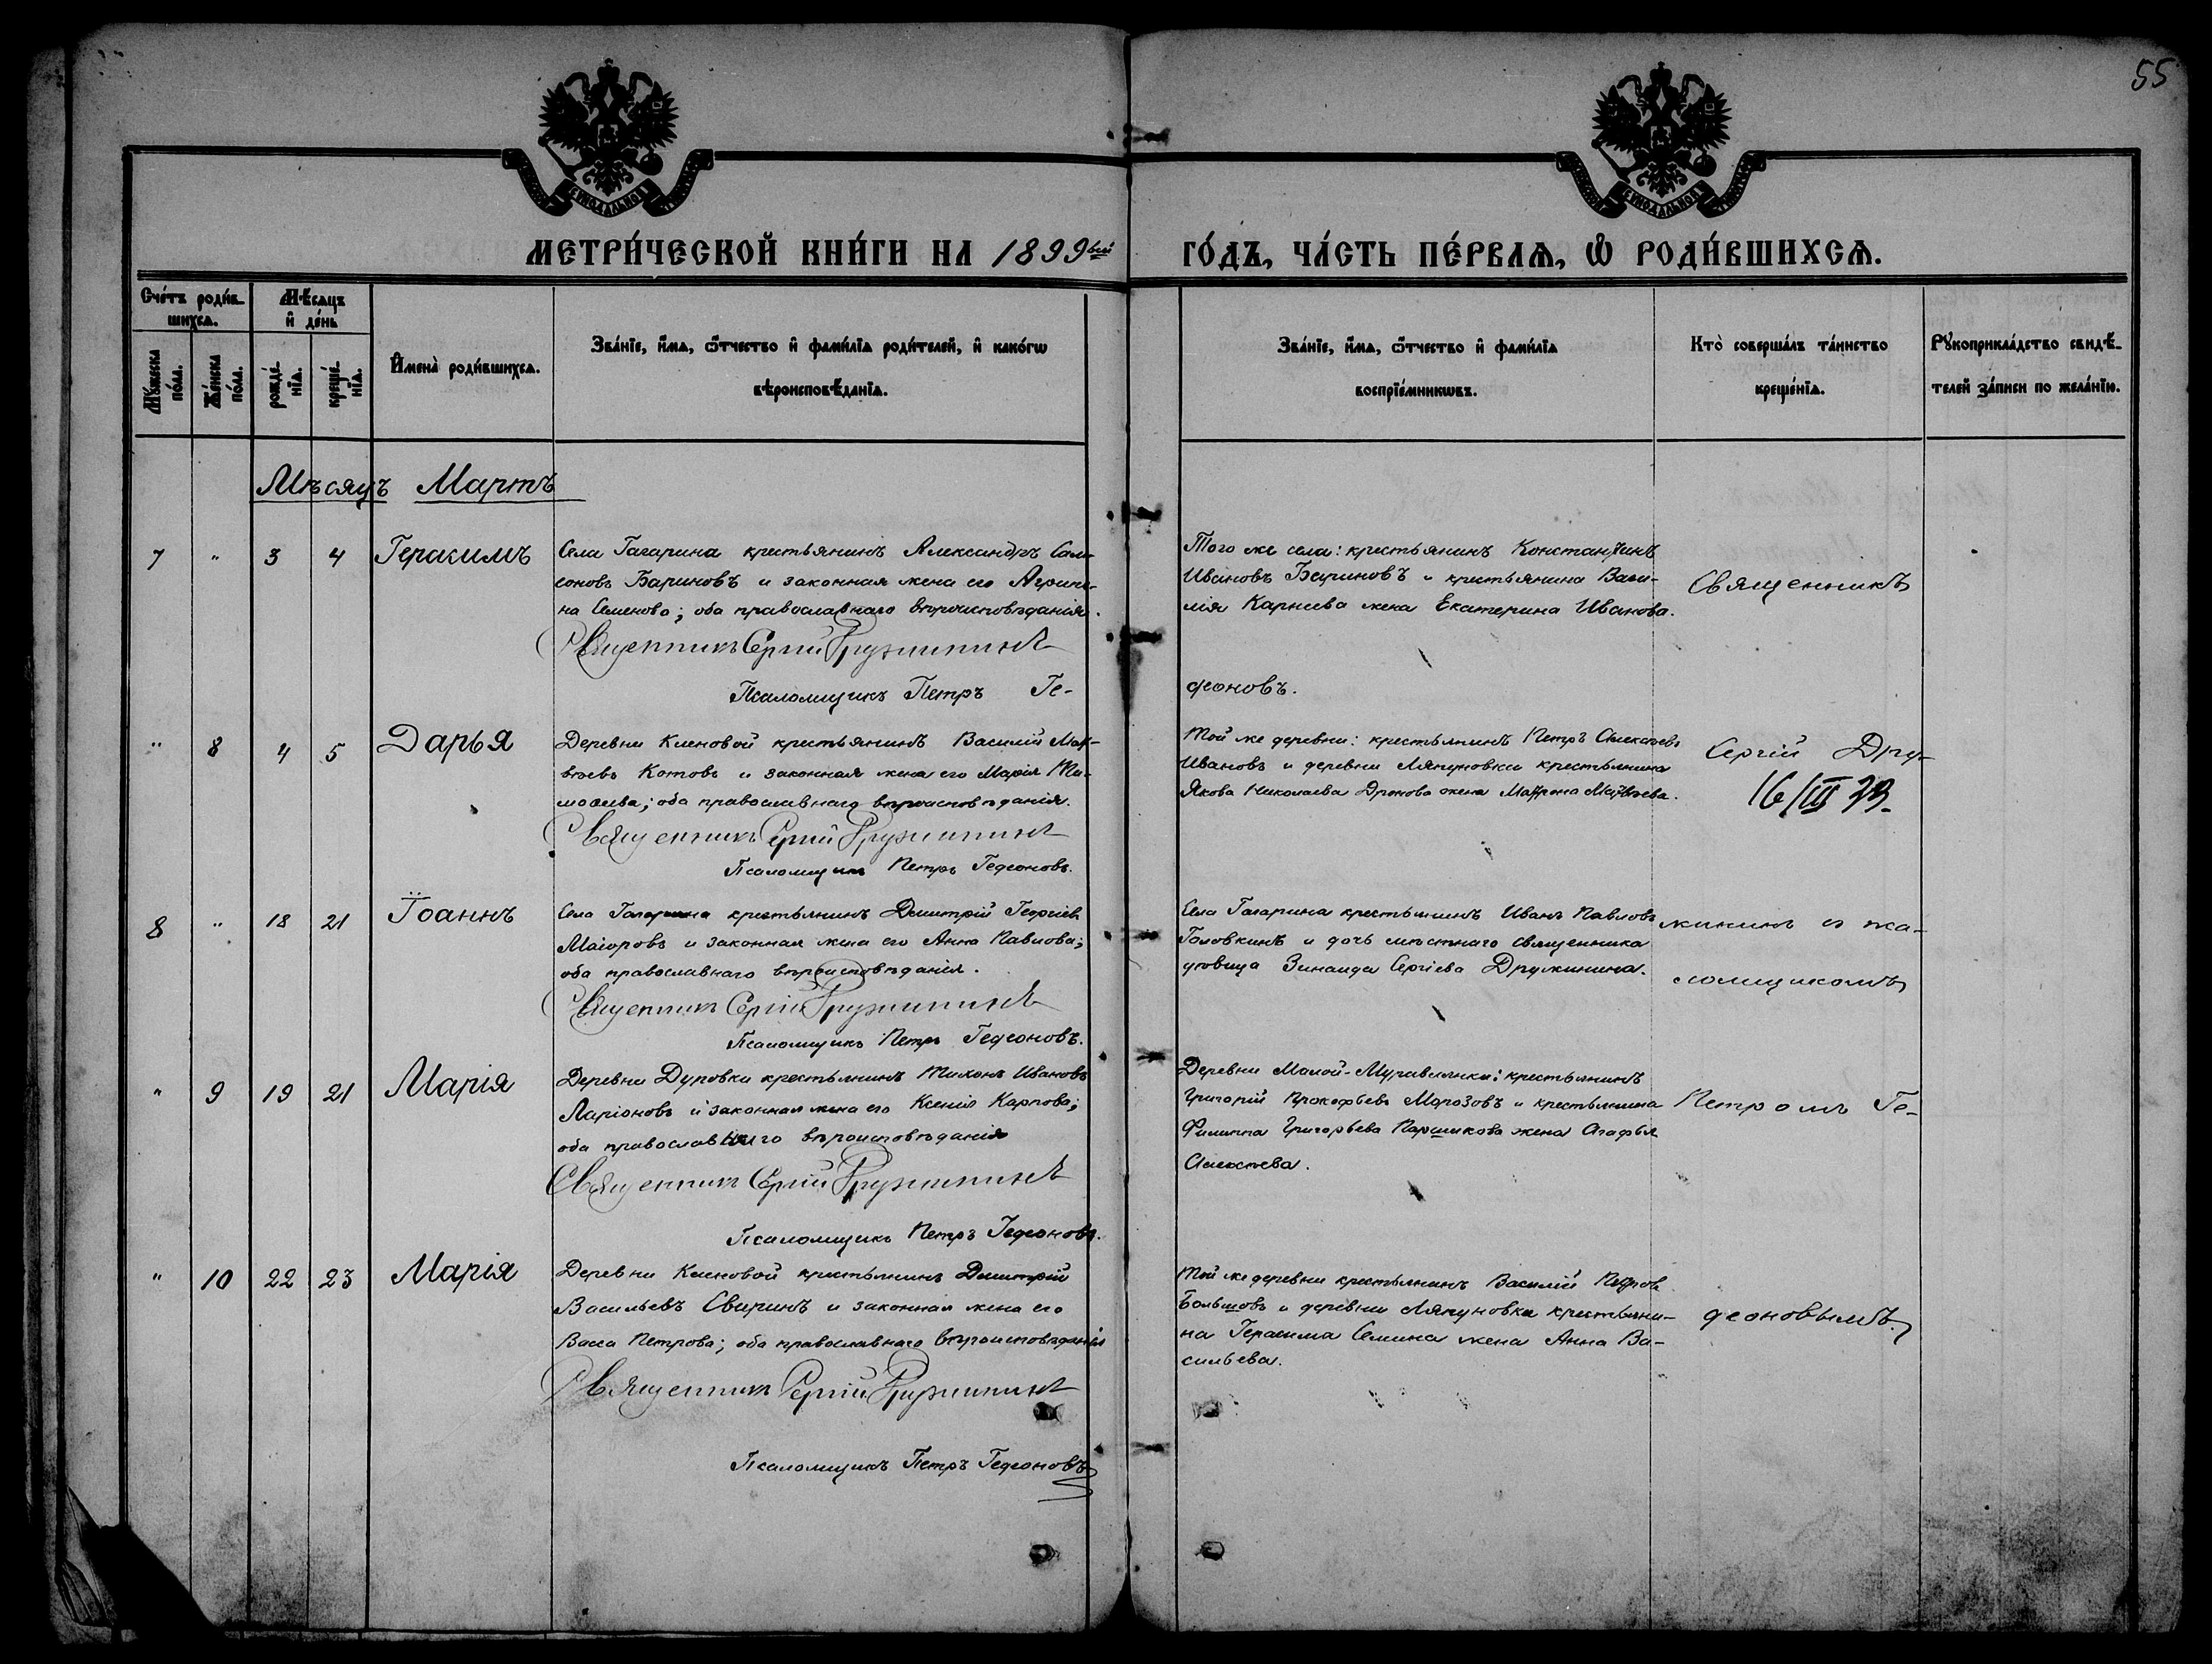 55
СѴНОДАЛЬНОЙ
СѴНОДАЛЬНОЙ
МЕТРИ́ЧЕСКОЙ КНИ́ГИ НА 1899вый ГО́ДЪ, ЧА́СТЬ ПЕ́РВАѦ, Ѡ҆ РОДИ́ВШИХСѦ.
Сче́тъ роди́в-
шихсѧ.
Мꙋ́жеска
по́ла.
Же́нска
по́ла.
Мѣ́сѧцъ
и҆ де́нь
рожде́-
нїѧ.
креще́-
нїѧ.
И҆мена̀ роди́вшихсѧ.
Зва́нїе, и҆́мѧ, ѻ҆́тчество и҆ фами́лїа роди́телей, и҆ како́гѡ
вѣроисповѣ́данїѧ.
Зва́нїе, и҆́мѧ, ѻ҆́тчество и҆ фами́лїа
воспрїе́мникѡвъ.
Кто̀ соверша́лъ та́инство
креще́нїѧ.
Рꙋкоприкла́дство свидѣ́-
телей за́писи по жела́нїю.
Мѣсяцъ Мартъ
7 " 3 4 Герасимъ
Села Гагарина крестьянинъ Александръ Сам-
соновъ Бариновъ и законная жена его Агрипи-
на Семенова; оба православнаго вѣроисповѣданія.
Священникъ Сергій Дружининъ
Псаломщикъ Петръ Ге-
деоновъ.
Того же села: крестьянинъ Константинъ
Ивановъ Бариновъ и крестьянина Васи-
лія Карнеева жена Екатерина Иванова.
Священникъ
" 8 4 5 Дарья
Деревни Кленовой крестьянинъ Василій Мат-
вѣевъ Котовъ и законная жена его Марія Ти-
моѳеева; оба православнаго вѣроисповѣданія.
Священникъ Сергій Дружининъ
Псаломщикъ Петръ Гедеоновъ.
Той же деревни: крестьянинъ Петръ Алексѣевъ
Ивановъ и деревни Ляпуновки крестьянина
Якова Николаева Дронова жена Матрона Матвѣева.
Сергій Дру-
16/III 39
8 " 18 21 Іоаннъ
Села Гагарина крестьянинъ Димитрій Георгіев
Маіоровъ и законная жена его Анна Павлова;
оба православнаго вѣроисповѣданія.
Священникъ Сергій Дружининъ
Псаломщикъ Петръ Гедеоновъ.
Села Гагарина крестьянинъ Иванъ Павловъ
Головкинъ и дочь мѣстнаго священника
дѣвица Зинаида Сергіева Дружинина.
жининъ съ пса-
ломщикомъ
" 9 19 21 Марія
Деревни Дуровки крестьянинъ Тихонъ Ивановъ
Ларіоновъ и законная жена его Ксенія Карпова;
оба православнаго вѣроисповѣданія
Священникъ Сергій Дружининъ
Псаломщикъ Петръ Гедеоновъ.
Деревни Малой-Муравлянки: крестьянинъ
Григорій Прокофьевъ Морозовъ и крестьянина
Филиппа Григорьева Паршикова жена Агафья
Алексѣева.
Петромъ Ге-
" 10 22 23 Марія
Деревни Кленовой крестьянинъ Димитрій
Васильевъ Свиринъ и законная жена его
Васса Петрова; оба православнаго вѣроисповѣданія
Священникъ Сергій Дружининъ
Псаломщикъ Петръ Гедеоновъ
Той же деревни крестьянинъ Василій Петров
Большовъ и деревни Ляпуновки крестьяни-
на Герасима Семина жена Анна Ва-
сильева.
деоновымъ.